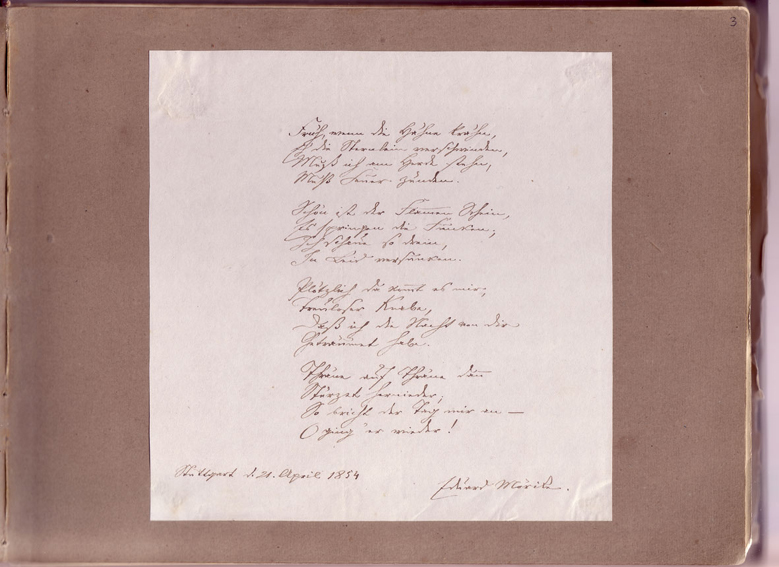 3
Früh, wenn die Hähne krähn,
Eh' die Sternlein verschwinden,
Muß ich am Herde stehn,
Muß Feuer zünden.
Schön ist der Flammen Schein,
Es springen die Funken;
Ich schaue so drein,
In Leid versunken.
Plötzlich da kommt es mir,
Treuloser Knabe,
Daß ich die Nacht von dir
Geträumet habe.
Thräne auf Thräne dann
Stürzet hernieder;
So bricht der Tag mir an —
O ging' er wieder!
Stuttgart d. 21. April 1854
Eduard Mörike.